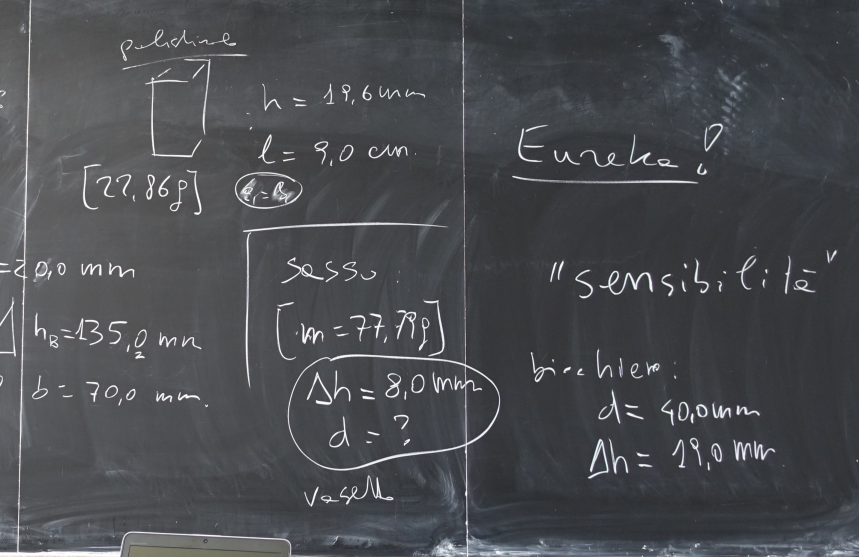 h = 19,6 mm
l = 9,0 cm.
[27,86g]
= 20,0 mm
h_B = 135,0 mm
b = 70,0 mm.
sasso:
[m = 77,79g]
Δh = 8,0 mm
d = ?
vasetto
Eureka!
"sensibilità"
bicchiere:
d = 40,0 mm
Δh = 19,0 mm